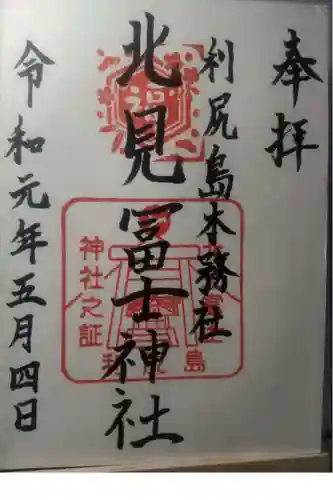 奉拝
利尻島本務社
北見冨士神社
令和元年五月四日
神社之証